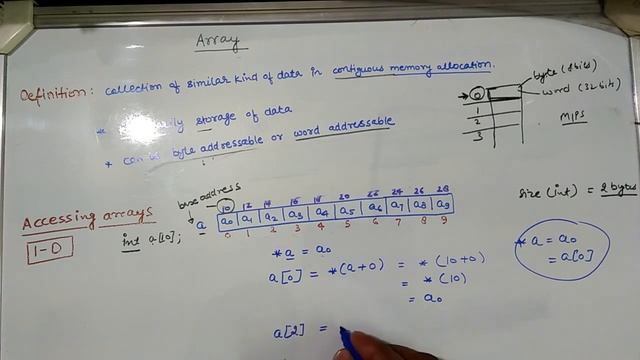 Array
Definition: collection of similar kind of data in contiguous memory allocation.
* storage of data
* can be byte addressable or word addressable
byte (8 bits)
word (32 bits)
0
1
2
3
MIPS
base address
10 12 14 16 18 20 22 24 26 28
a a0 a1 a2 a3 a4 a5 a6 a7 a8 a9
0 1 2 3 4 5 6 7 8 9
size (int) = 2 bytes
Accessing arrays
1-D
int a[10];
*a = a0
a[0] = *(a+0) = *(10+0)
= *(10)
= a0
* a = a0
= a[0]
a[2] =